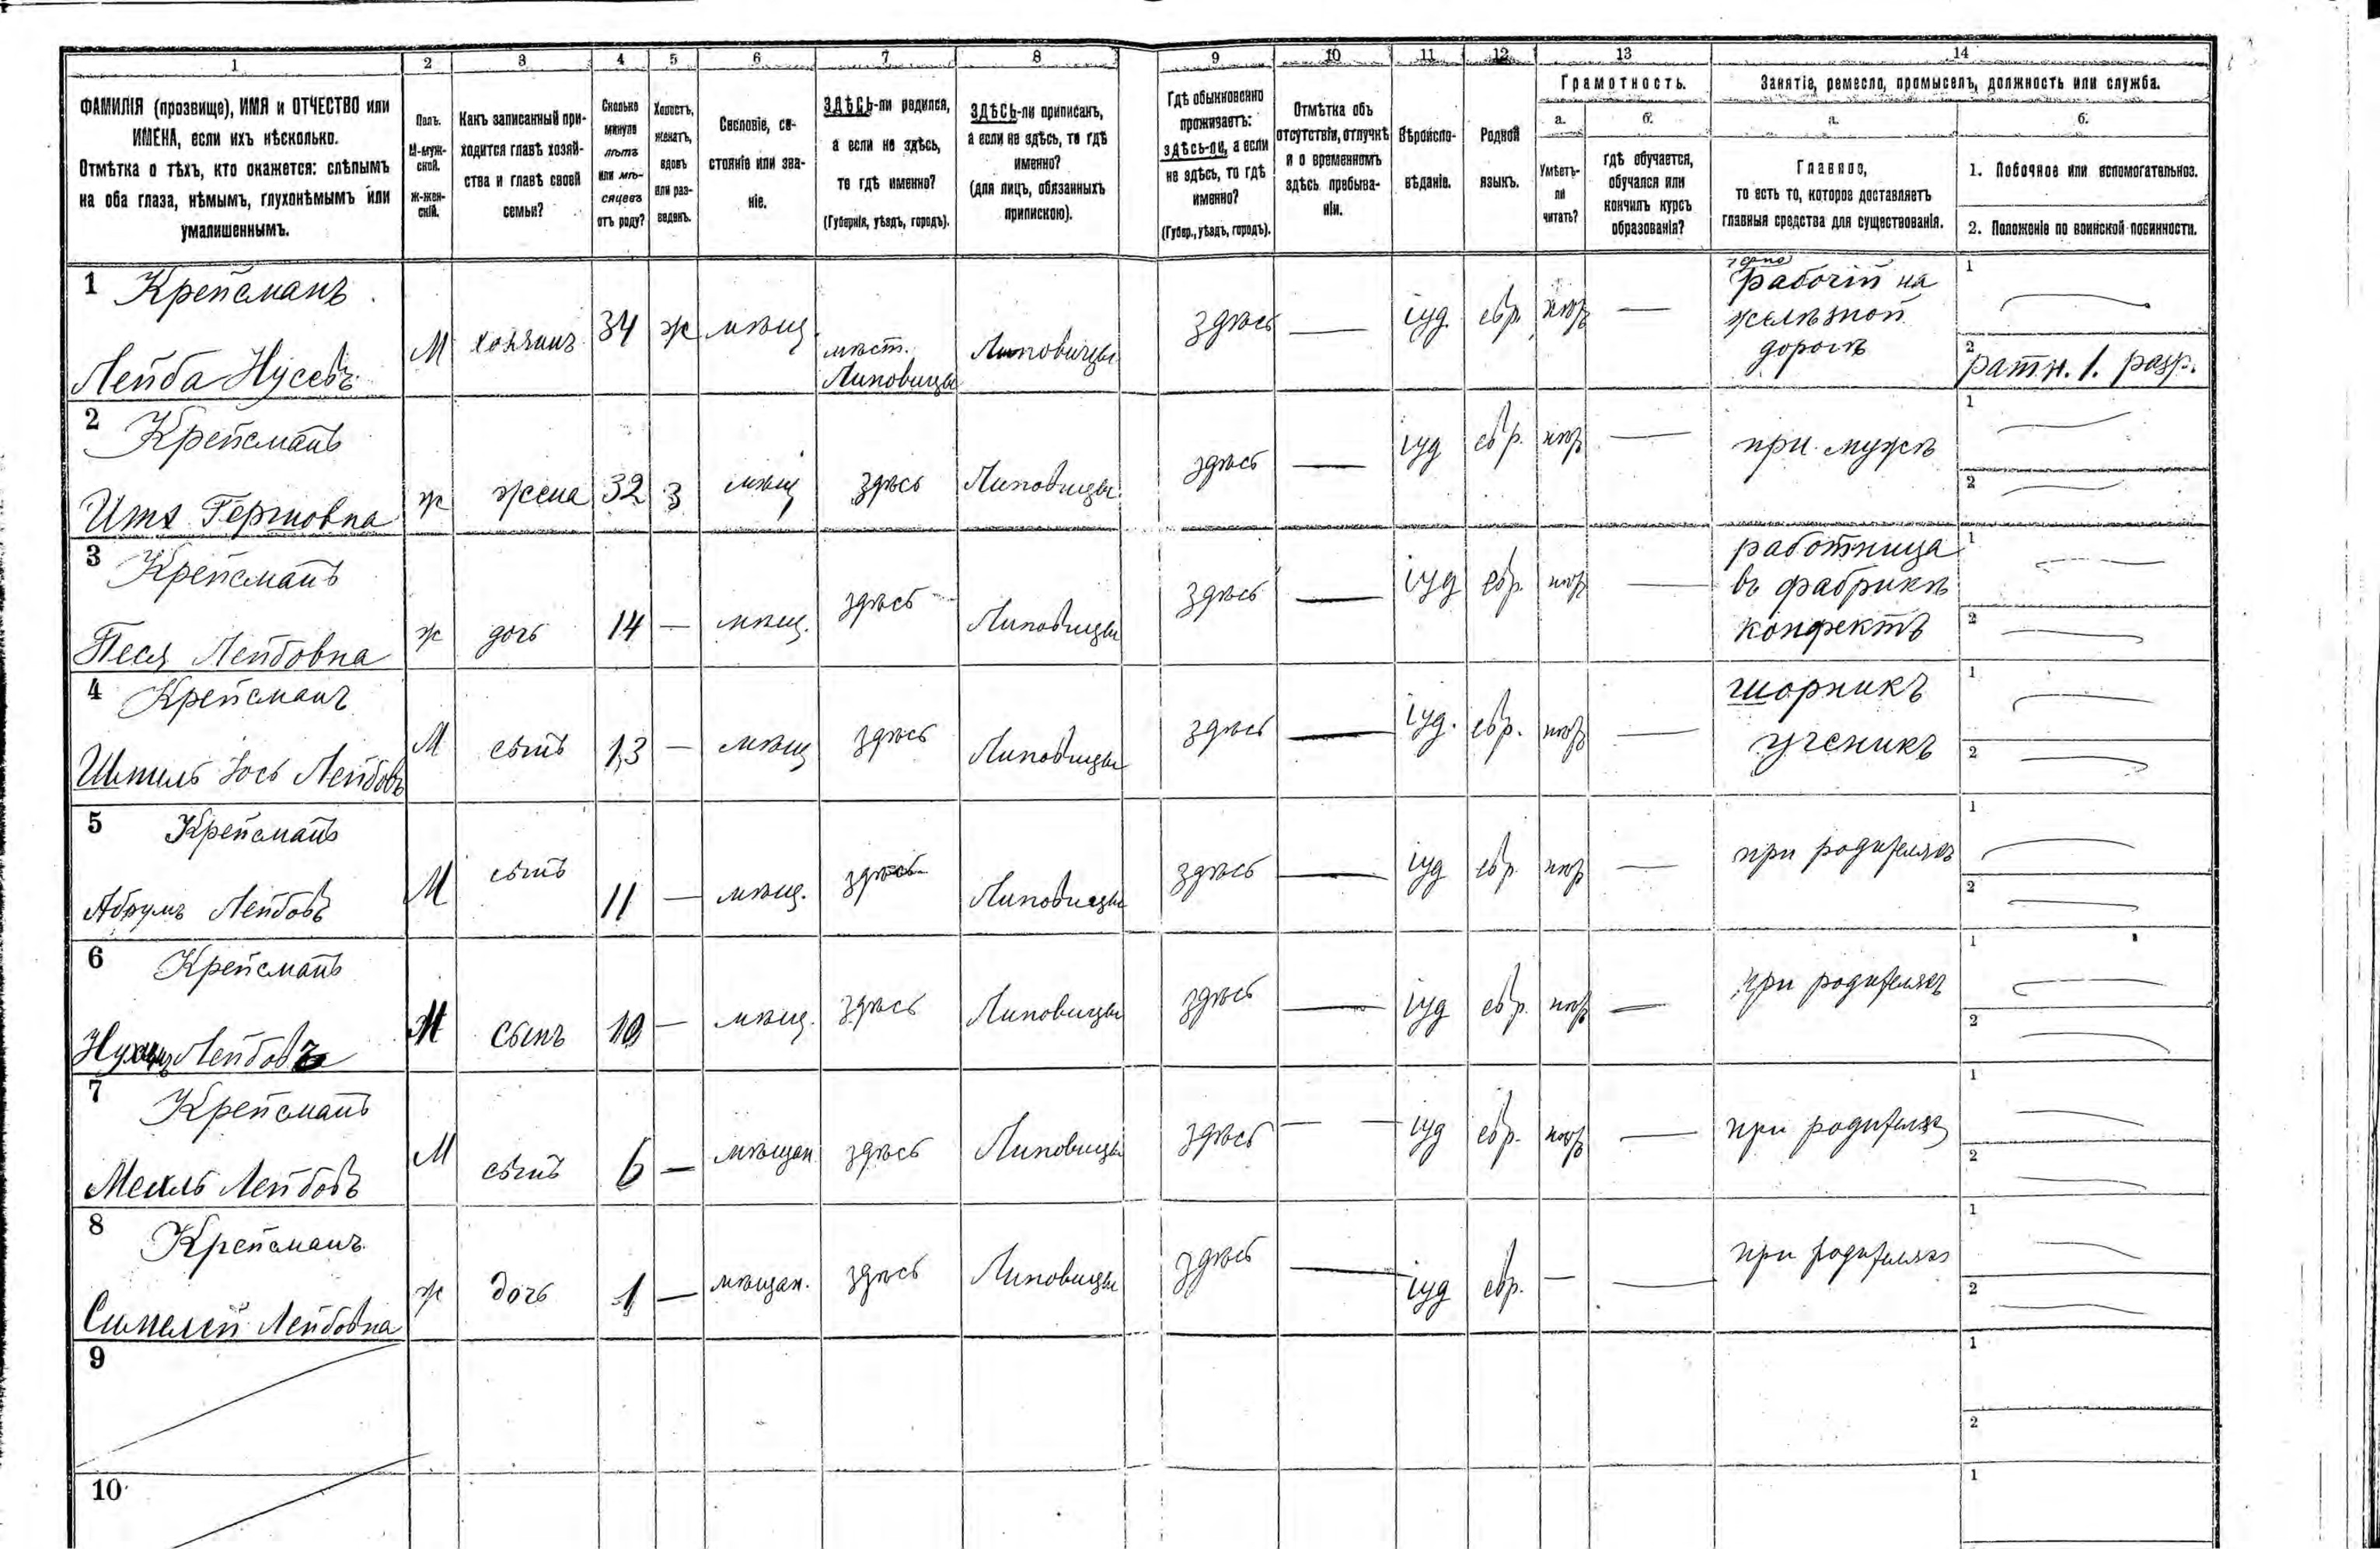 1 2 3 4 5 6 7 8 9 10 11 12 13 14
ФАМИЛІЯ (прозвище), ИМЯ и ОТЧЕСТВО или
ИМЕНА, если ихъ нѣсколько.
Отмѣтка о тѣхъ, кто окажется: слѣпымъ
на оба глаза, нѣмымъ, глухонѣмымъ или
умалишеннымъ.
Полъ.
М-муж-
ской.
Ж-жен-
скій.
Какъ записанный при-
ходится главѣ хозяй-
ства и главѣ своей
семьи?
Сколько
минуло
лѣтъ
или мѣ-
сяцевъ
отъ роду?
Холостъ,
женатъ,
вдовъ
или раз-
веденъ.
Сословіе, со-
стояніе или зва-
ніе.
ЗДѢСЬ-ли родился,
а если не здѣсь,
то гдѣ именно?
(Губернія, уѣздъ, городъ).
ЗДѢСЬ-ли приписанъ,
а если не здѣсь, то гдѣ
именно?
(для лицъ, обязанныхъ
припискою).
Гдѣ обыкновенно
проживаетъ:
здѣсь-ли, а если
не здѣсь, то гдѣ
именно?
(Губер., уѣздъ, городъ).
Отмѣтка объ
отсутствіи, отлучкѣ
и о временномъ
здѣсь пребыва-
ніи.
Вѣроиспо-
вѣданіе.
Родной
языкъ.
Грамотность.
а.
Умѣетъ-
ли
читать?
б.
гдѣ обучается,
обучался или
кончилъ курсъ
образованія?
Занятіе, ремесло, промыселъ, должность или служба.
а.
Главное,
то есть то, которое доставляетъ
главныя средства для существованія.
б.
1. Побочное или вспомогательное.
2. Положеніе по воинской повинности.
1 Крейсманъ
Лейба Нусевъ
М хозяинъ 34 ж мѣщ.
мѣст.
Липовицы
Липовицы здѣсь — іуд. евр. —
рабочій на
желѣзной
дорогѣ
1
2 ратн. 1. разр.
2 Крейсманъ
Ита
ж жена 32 з мѣщ здѣсь Липовицы здѣсь — іуд евр. — при мужѣ
1
2
3 Крейсманъ
Песя Лейбовна
ж дочь 14 — мѣщ. здѣсь Липовицы здѣсь — іуд евр. —
работница
въ фабрикѣ
конфектъ
1
2
4 Крейсманъ
Лейбовъ
М сынъ 13 — мѣщ здѣсь Липовицы здѣсь — іуд. евр. —
шорникъ
ученикъ
1
2
5 Крейсманъ
Абрумъ Лейбовъ
М сынъ 11 — мѣщ. здѣсь Липовицы здѣсь — іуд евр — при родителяхъ
1
2
6 Крейсманъ
Лейбовъ
М сынъ 10 — мѣщ. здѣсь Липовицы здѣсь — іуд евр. — при родителяхъ
1
2
7 Крейсманъ
Лейбовъ
М сынъ 6 — мѣщан здѣсь Липовицы здѣсь — — іуд евр. — при родителяхъ
1
2
8 Крейсманъ
Лейбовна
ж дочь 1 — мѣщан. здѣсь Липовицы здѣсь — іуд евр. — — при родителяхъ
1
2
9
1
2
10
1